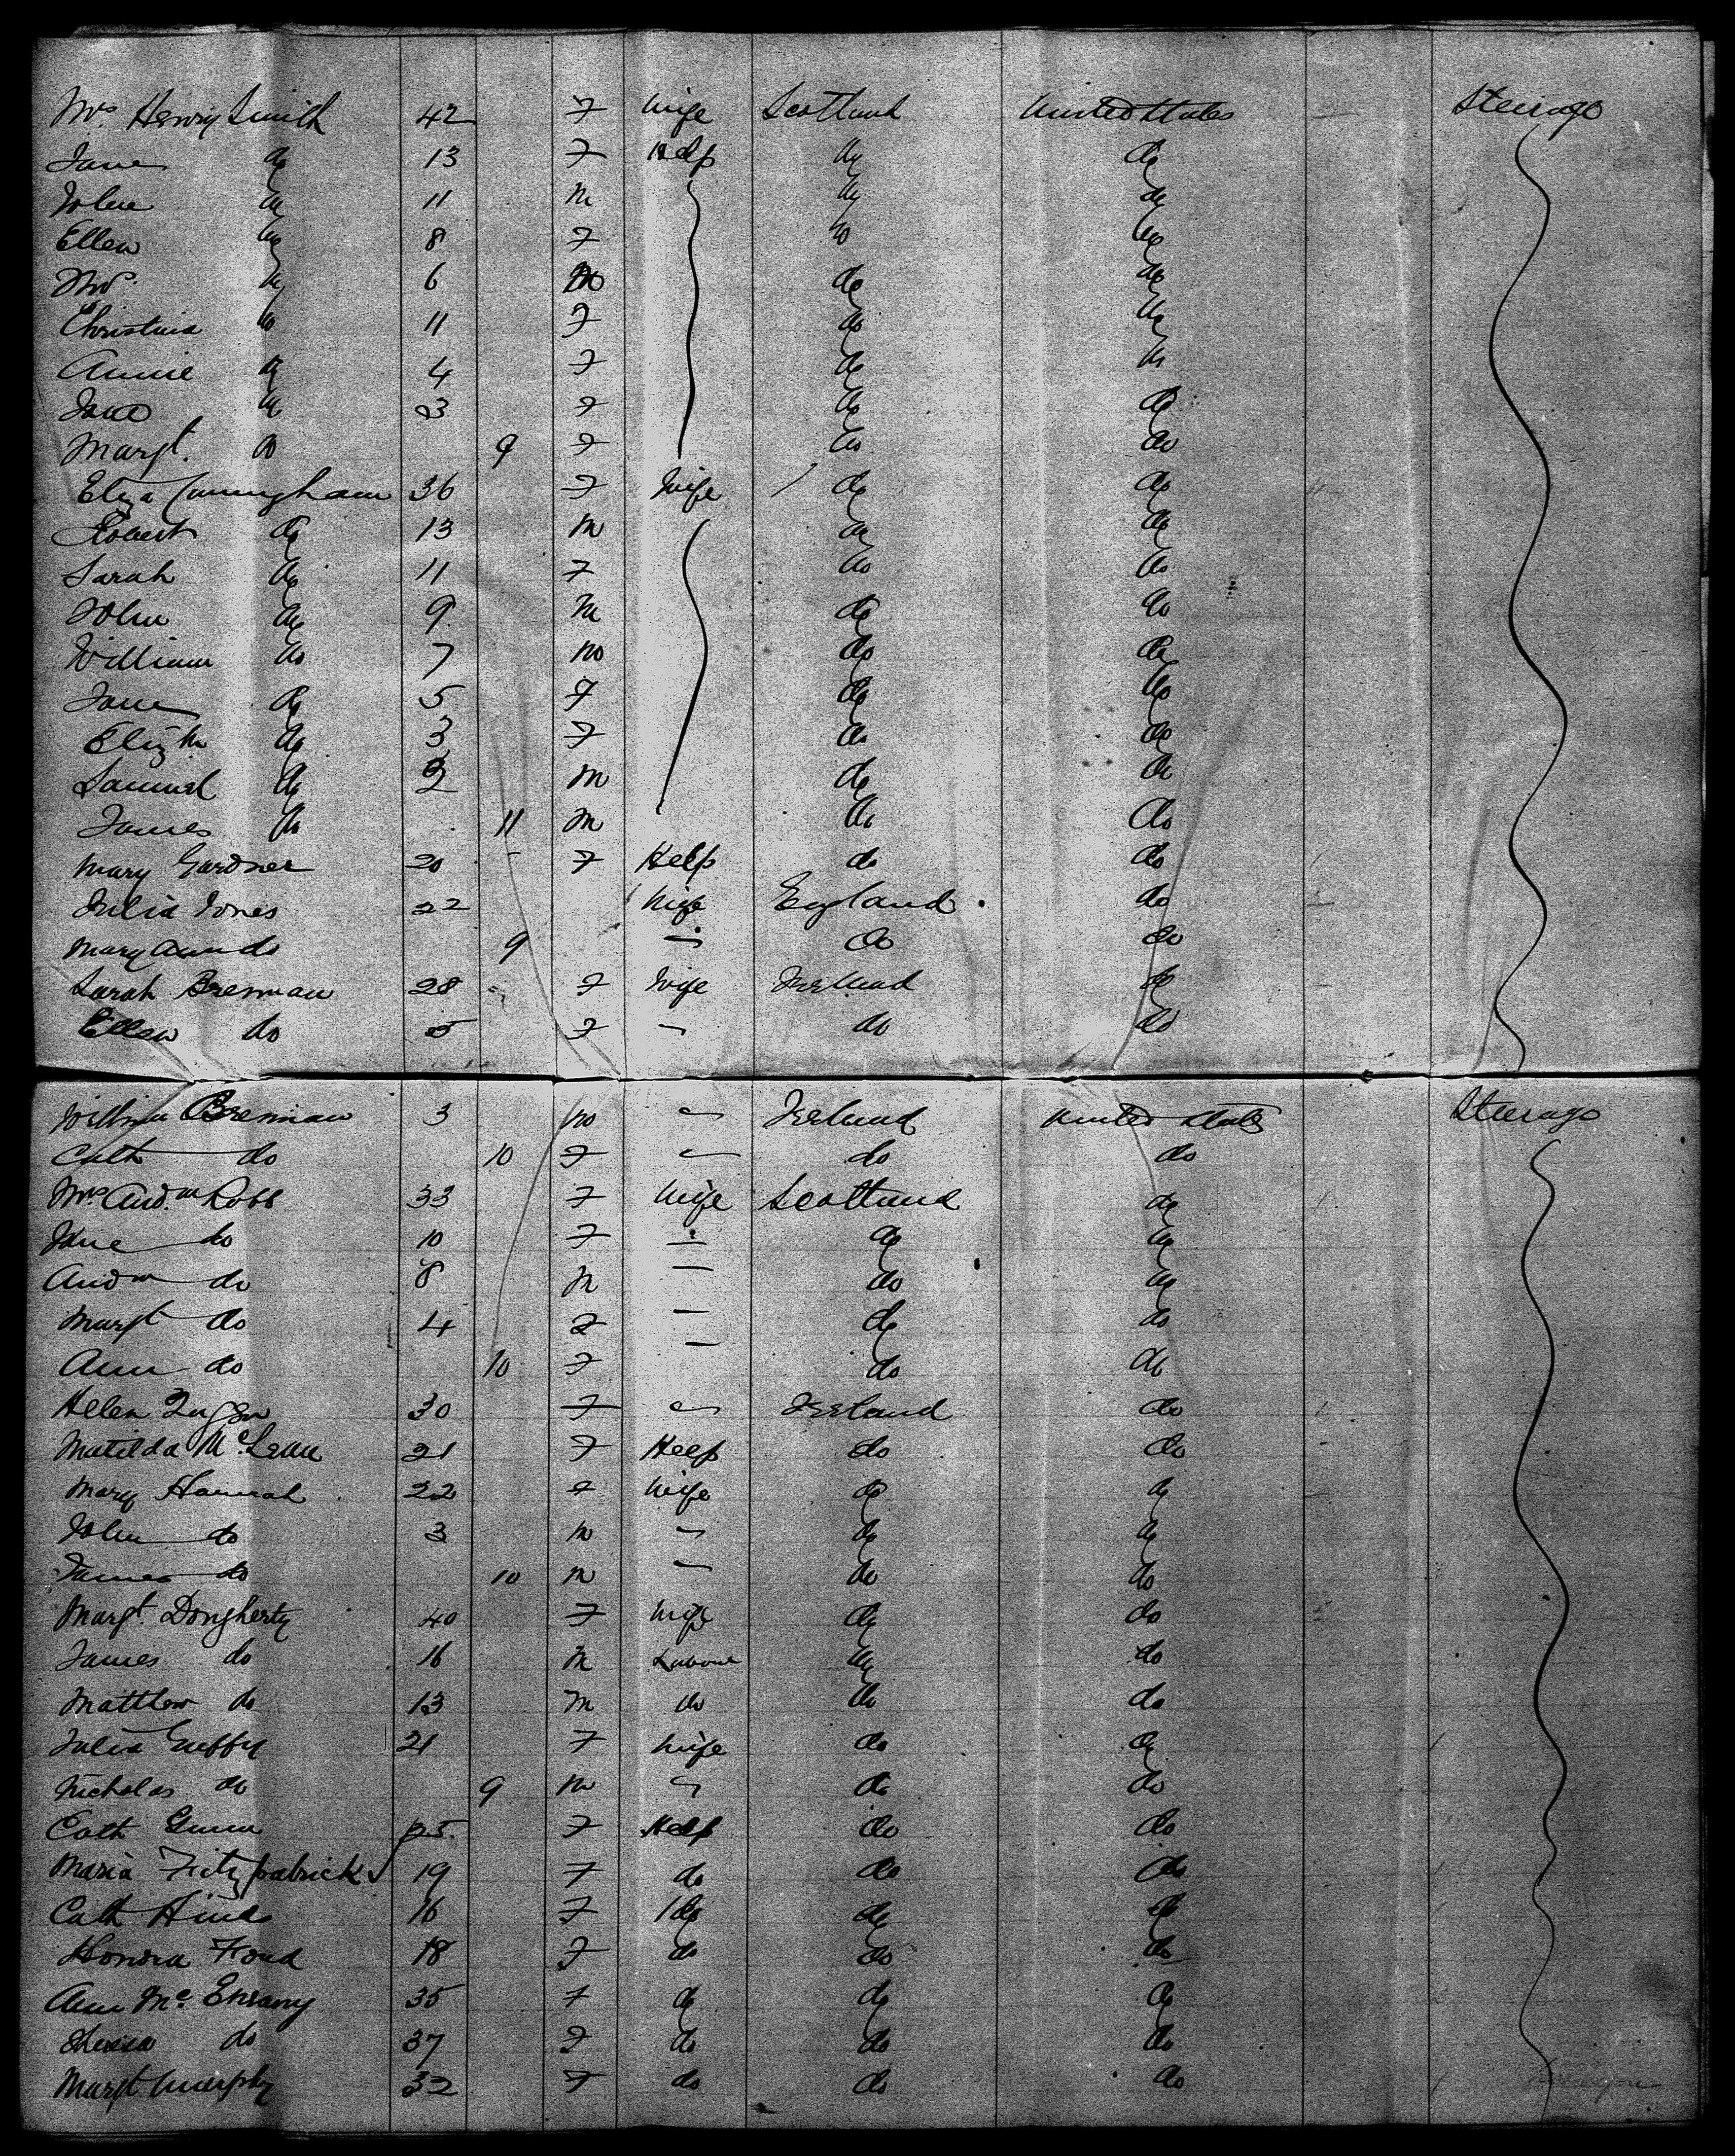 Mrs. Henry Smith 42 F Wife Scotland United States Steerage
Jane do 13 F Help do do
John do 11 M do do
Ellen do 8 F do do
Wm. do 6 M do do
Christina do 11 F do do
Annie do 4 F do do
Jane do 3 F do do
Margt. do 9 F do do
Eliza Cunningham 36 F Wife do do
Robert do 13 M do do
Sarah do 11 F do do
John do 9 M do do
William do 7 M do do
Jane do 5 F do do
Elizth do 3 F do do
Samuel do 2 M do do
James do 11 M do do
Mary Gardner 20 - F Help do do
Julia Jones 22 Wife England do
Mary Ann do 9 - do do
Sarah Brennan 28 F Wife Ireland do
Ellen do 5 F - do do
William Brennan 3 M - Ireland United States Steerage
Cath do 10 F - do do
Mrs. Andw Robb 33 F Wife Scotland do
Jane do 10 F - do do
Andw do 8 M - do do
Margt do 4 F - do do
Ann do 10 F - do do
Helen 30 F - Ireland do
Matilda McLean 21 F Help do do
Mary Hannah 22 F Wife do do
John do 3 M - do do
James do 10 M - do do
Margt. Dougherty 40 F Wife do do
James do 16 M Labour do do
Matthew do 13 M do do do
Julia Guffy 21 F Wife do do
Nicholas do 9 M - do do
Cath 25 F Help do do
Maria Fitzpatrick 19 F do do do
Cath Hinds 16 F do do do
Honora 18 F do do do
Ann Mc 35 F do do do
do 37 F do do do
Margt Murphy 32 F do do do